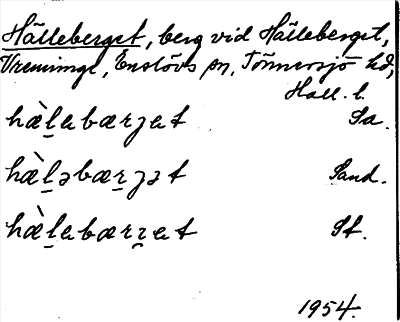 Hälleberget, berg vid Hälleberget,
Vreninge, Enslövs sn, Tönnersjö hd,
Hall. l.
hæ̀l̠abærʒat Sa.
hæ̀l̠əbær̠ʒət Sand.
hæ̀l̠abærʒ̠at St.
1954.